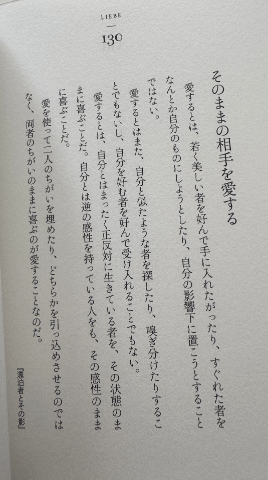 LIEBE
130
そのままの相手を愛する
愛するとは、若く美しい者を好んで手に入れたがったり、すぐれた者を
なんとか自分のものにしようとしたり、自分の影響下に置こうとすること
ではない。
愛するとはまた、自分と似たような者を探したり、嗅ぎ分けたりするこ
とでもないし、自分を好む者を好んで受け入れることでもない。
愛するとは、自分とはまったく正反対に生きている者を、その状態のま
まに喜ぶことだ。自分とは逆の感性を持っている人をも、その感性のまま
に喜ぶことだ。
愛を使って二人のちがいを埋めたり、どちらかを引っ込めさせるのでは
なく、両者のちがいのままに喜ぶのが愛することなのだ。
『漂泊者とその影』